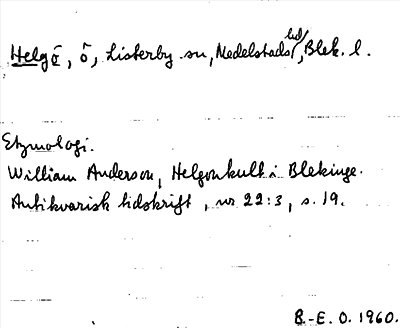 Helgö, ö, Listerby sn, Medelstads hd, Blek. l.
Etymologi.
William Anderson, Helgonkult i Blekinge.
Antikvarisk tidskrift, nr 22:3, s. 19.
B.-E. O. 1960.